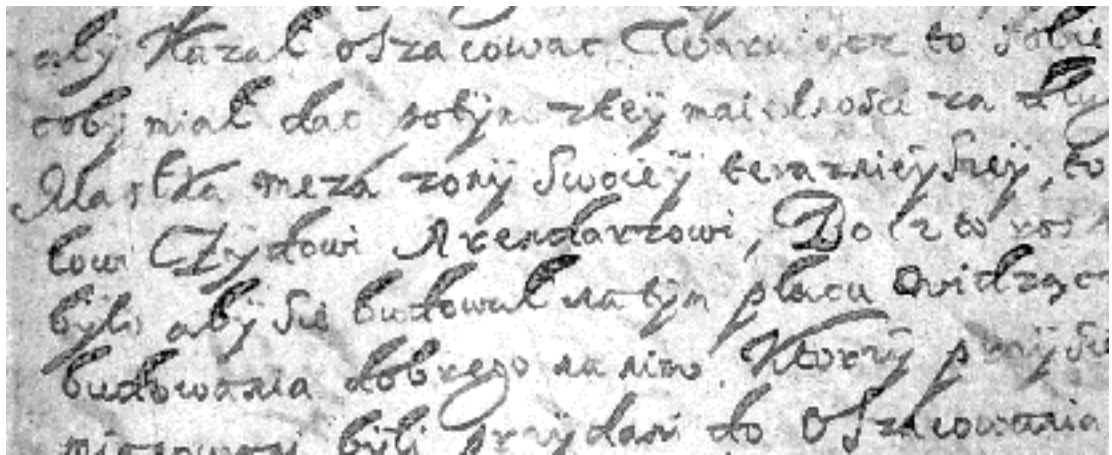 abÿ Kazał oszacowac Gwaruiącz to sobie
cobÿ miał dac potÿm zteÿ maiętnosci za dług
Mastka męza zonÿ Swoieÿ teraznieÿszeÿ, to
łowi Zÿdowi Arendarzowi, Do
bÿło abÿ Sie budował natÿm płacu widząc
budowania dobrego na nim Ktorzÿ
bÿli przÿdani do Oszacowania